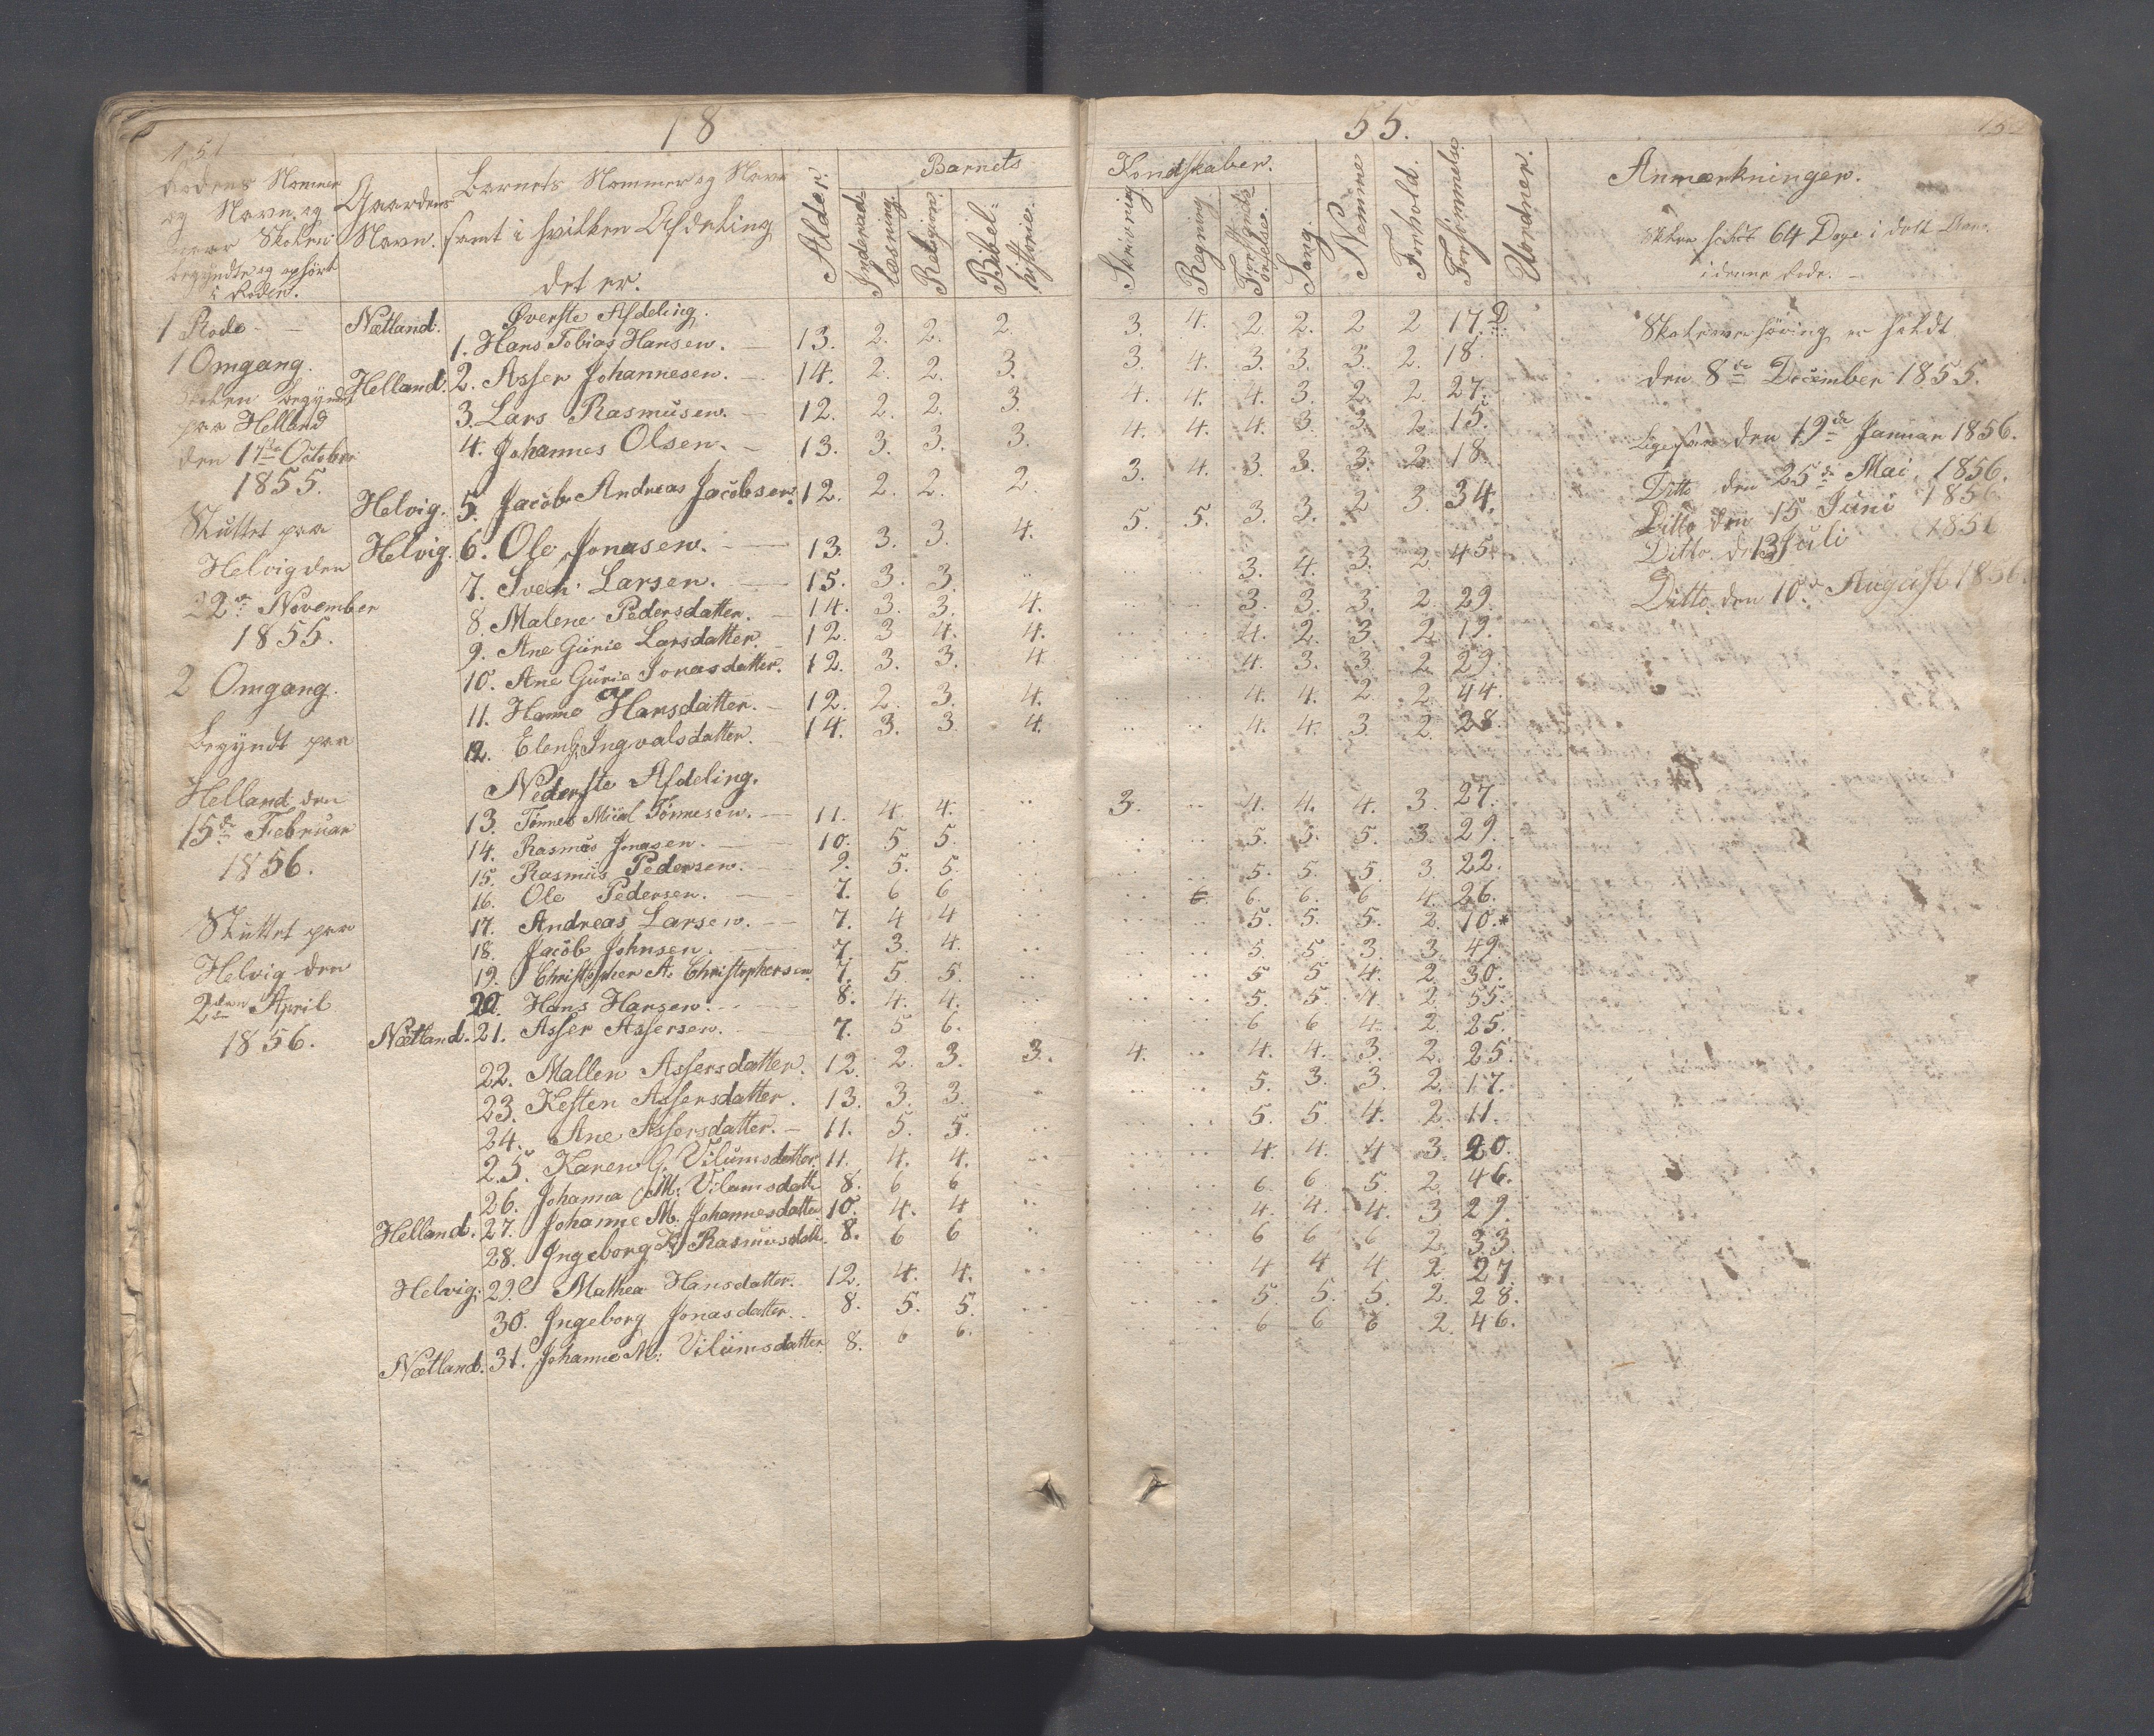 151
18
Rodens Nommer og Navn, og naar Skolen begyndte og ophørt i Roden.
Gaardens Navn.
Barnets Nommer og Navn samt i hvilken Afdeling det er.
Alder.
Barnets
Indenad-læsning.
Religion.
Bibel-historie.
1 Rode
1 Omgang.
Skolen begyndt
paa Helland
den 17de October
1855.
Sluttet paa
Helvig den
22de November
1855.
2 Omgang.
Begyndt paa
Helland den
15de Februar
1856.
Sluttet paa
Helvig den
2den April
1856.
Øverste Afdeling.
Nætland. 1. Hans Tobias Hansen. 13. 2. 2. 2.
Helland. 2. Asser Johannesen. 14. 2. 2. 3.
3. Lars Rasmusen. 12. 2. 2. 3.
4. Johannes Olsen. 13. 3. 3. 3.
Helvig. 5. Jacob Andreas Jacobsen. 12. 2. 2. 2
Helvig. 6. Ole Jonasen. 13. 3. 3. 4.
7. Sven Larsen. 15. 3. 3. ..
8. Malene Pedersdatter. 14. 3. 3. 4.
9. Ane Gurie Larsdatter. 12. 3 4. 4.
10. Ane Gurie Jonasdatter. 12. 3. 3. 4
11. Hanne Hansdatter. 12. 2. 3. 4.
12. Elen Ingvalsdatter. 14. 3. 3. 4.
Nederste Afdeling.
13. Tønnes Miäl Tønnesen. 11. 4. 4. ..
14. Rasmus Jonasen. 10. 5 5. ..
15. Rasmus Pedersen. 9. 5. 5. ..
16. Ole Pedersen. 7. 6 6 ..
17. Andreas Larsen. 7. 4 4 ..
18. Jacob Johnsen. 7. 3. 4. ..
19. Christopher A. Christophersen 7. 5 5. ..
20. Hans Hansen. 8. 4. 4. ..
Nætland. 21. Asser Assersen. 7. 5 6. ..
22. Mallen Assersdatter. 12. 2. 3. 3.
23. Kesten Assersdatter. 13. 3. 3. ..
24. Ane Assersdatter. 11. 5. 5. ..
25. Karen G. Vilumsdatter 11. 4. 4. ..
26. Johanna M. Vilumsdatte 8. 6 6 ..
Helland. 27. Johanne M. Johannesdatter 10. 4. 4 ..
28. Ingeborg K Rasmusdatt. 8. 6 6 ..
Helvig. 29. Mathea Hansdatter. 12. 4. 4. ..
30. Ingeborg Jonasdatter. 8. 5. 5. ..
Nætland. 31. Johanne M. Vilumsdatter 8. 6 6. ..
55.
Kundskaber.
Skrivning
Regning
Sang.
Nemme
Forhold.
Forsømmelse
Anmærkninger.
Skolen holdt 64 Dage i dett Aar
i denne Rode.
3. 4. 2. 2. 2 2 17.D
3. 4. 3. 3. 3. 2. 18.
4. 4. 4. 3. 2 2. 27.
4. 4. 4. 3 3. 2 15.
3. 4. 3. 3. 3. 2 18.
5. 5. 3. 3. 2 3. 34.
.. .. 3. 4. 3. 2 45.
.. .. 3. 3. 3. 2 29.
.. .. 4. 2. 3. 2 19.
.. .. 4. 3. 3. 2 29.
.. .. 4. 4. 2 2. 44.
.. .. 4. 4. 3. 2. 28.
3. .. 4. 4. 4. 3. 27.
.. .. 5. 5. 5. 3. 29.
.. .. 5. 5. 5. 3. 22.
.. 6 6. 6. 6 4. 26.
.. .. 5. 5. 5. 2. 10.*
.. .. 5. 5 3. 3. 49.
.. .. 5 5 4. 2 30.
.. .. 5. 5. 4. 2 55.
.. .. 6 6 4. 2. 25.
4. .. 4. 4. 3. 2. 25.
.. .. 5. 3. 3. 2. 17.
.. .. 5. 5 4. 2. 11.
.. .. 4. 4. 4 3. 20.
.. .. 6. 6. 5 2. 46.
.. .. 4. 4. 4. 3 29.
.. .. 6 6 6 2. 33.
.. .. 4 4 4 2. 27.
.. .. 5. 5. 5. 2. 28.
.. .. 6 6 6 2. 46.
den 8de December 1855.
Ligesaa den 19de Januar 1856.
Ditto den 25de Mai 1856.
Ditto den 15 Juni 1856
Ditto d. 13 Juli 1856
Ditto den 10de August 1856.